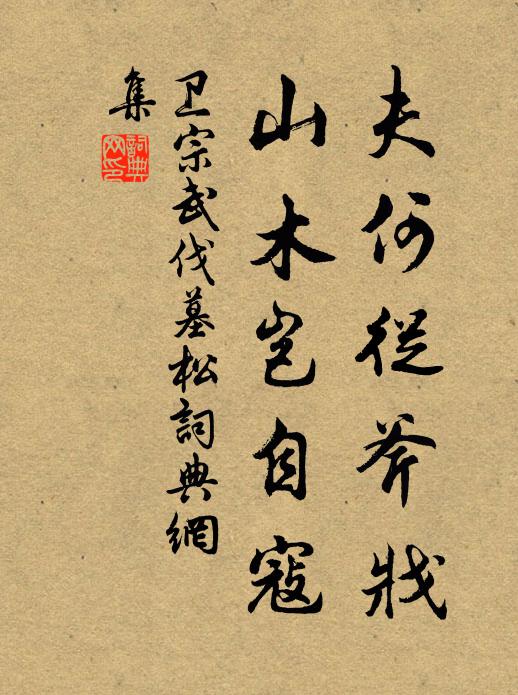 夫何從斧戕
山木岂自寇
卫宗武伐墓松詞典網
集
詞典
网印